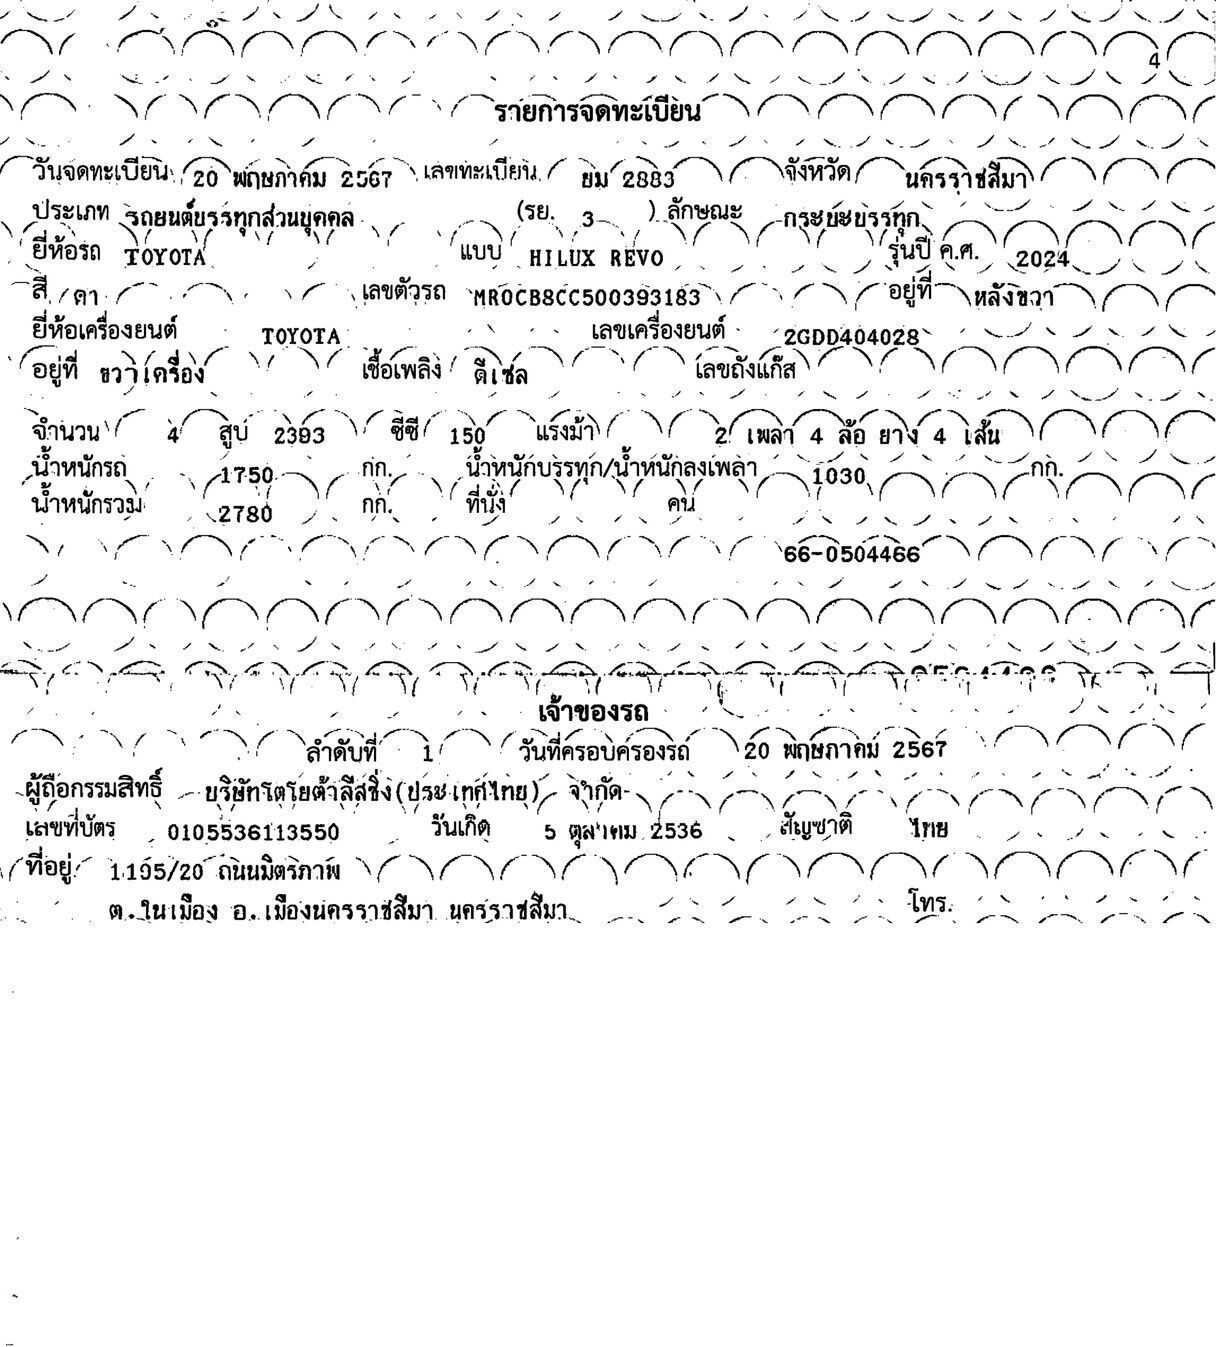 4
รายการจดทะเบียน
วันจดทะเบียน 20 พฤษภาคม 2567 เลขทะเบียน ยม 2883 จังหวัด นครราชสีมา
ประเภท รถยนต์บรรทุกส่วนบุคคล (รย. 3 ) ลักษณะ กระบะบรรทุก
ยี่ห้อรถ TOYOTA แบบ HILUX REVO รุ่นปี ค.ศ. 2024
สี ดำ เลขตัวรถ MR0CB8CC500393183 อยู่ที่ หลังขวา
ยี่ห้อเครื่องยนต์ TOYOTA เลขเครื่องยนต์ 2GDD404028
อยู่ที่ ขวาเครื่อง เชื้อเพลิง ดีเซล เลขถังแก๊ส
จำนวน 4 สูบ 2393 ซีซี 150 แรงม้า 2 เพลา 4 ล้อ ยาง 4 เส้น
น้ำหนักรถ 1750 กก. น้ำหนักบรรทุก/น้ำหนักลงเพลา 1030 กก.
น้ำหนักรวม 2780 กก. ที่นั่ง คน
66-0504466
เจ้าของรถ
ลำดับที่ 1 วันที่ครอบครองรถ 20 พฤษภาคม 2567
ผู้ถือกรรมสิทธิ์ บริษัทโตโยต้าลีสซิ่ง(ประเทศไทย) จำกัด
เลขที่บัตร 0105536113550 วันเกิด 5 ตุลาคม 2536 สัญชาติ ไทย
ที่อยู่ 1195/20 ถนนมิตรภาพ
ต.ในเมือง อ.เมืองนครราชสีมา นครราชสีมา โทร.